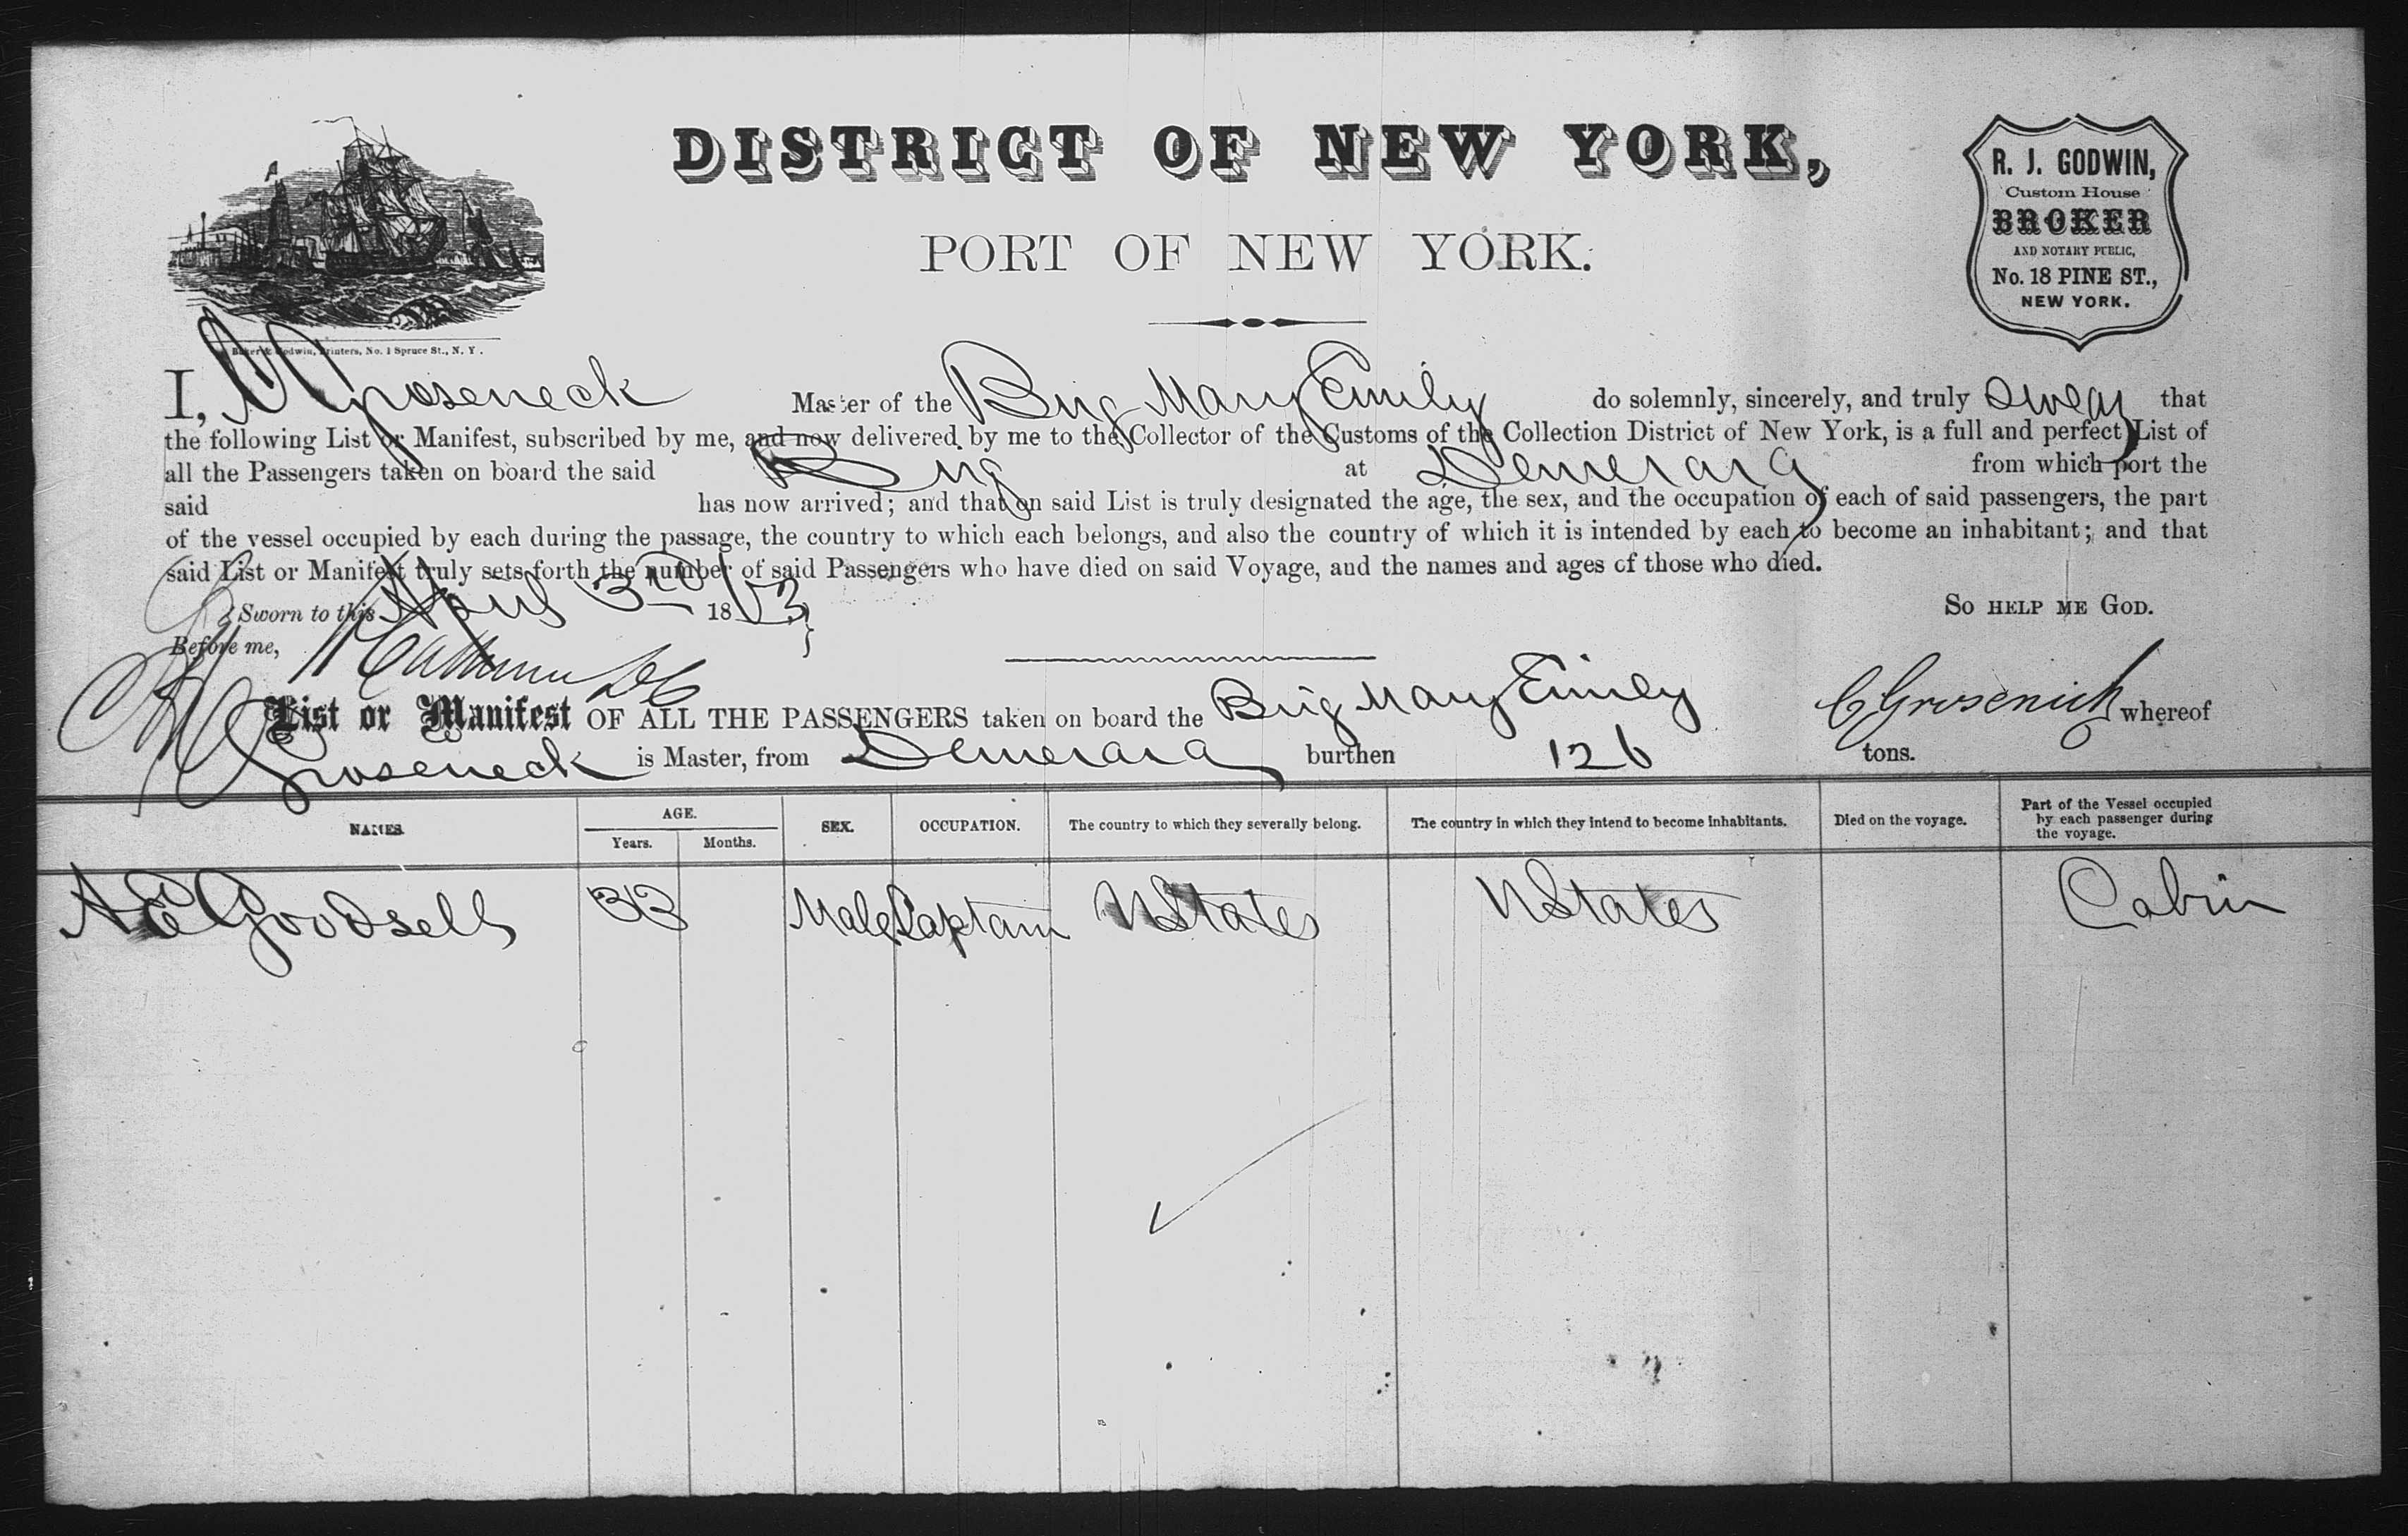 DISTRICT OF NEW YORK,
PORT OF NEW YORK.
R. J. GODWIN,
Custom House
BROKER
AND NOTARY PUBLIC,
No. 18 PINE ST.,
NEW YORK.
Baker & Godwin, Printers, No. 1 Spruce St., N. Y.
I, C Groseneck Master of the Brig Mary Emily do solemnly, sincerely, and truly swear that
the following List or Manifest, subscribed by me, and now delivered by me to the Collector of the Customs of the Collection District of New York, is a full and perfect List of
all the Passengers taken on board the said Brig at Demerara from which port the
said has now arrived; and that on said List is truly designated the age, the sex, and the occupation of each of said passengers, the part
of the vessel occupied by each during the passage, the country to which each belongs, and also the country of which it is intended by each to become an inhabitant; and that
said List or Manifest truly sets forth the number of said Passengers who have died on said Voyage, and the names and ages of those who died.
Sworn to this April 3rd 18 So HELP ME GOD.
Before me,
C Grosenick
List or Manifest OF ALL THE PASSENGERS taken on board the Brig Mary Emily whereof
Groseneck is Master, from Demerara burthen 126 tons.
NAMES. AGE. Years. Months. SEX. OCCUPATION. The country to which they severally belong. The country in which they intend to become inhabitants. Died on the voyage. Part of the Vessel occupied by each passenger during the voyage.
A E Goodsell 33 Male Captain UStates UStates Cabin